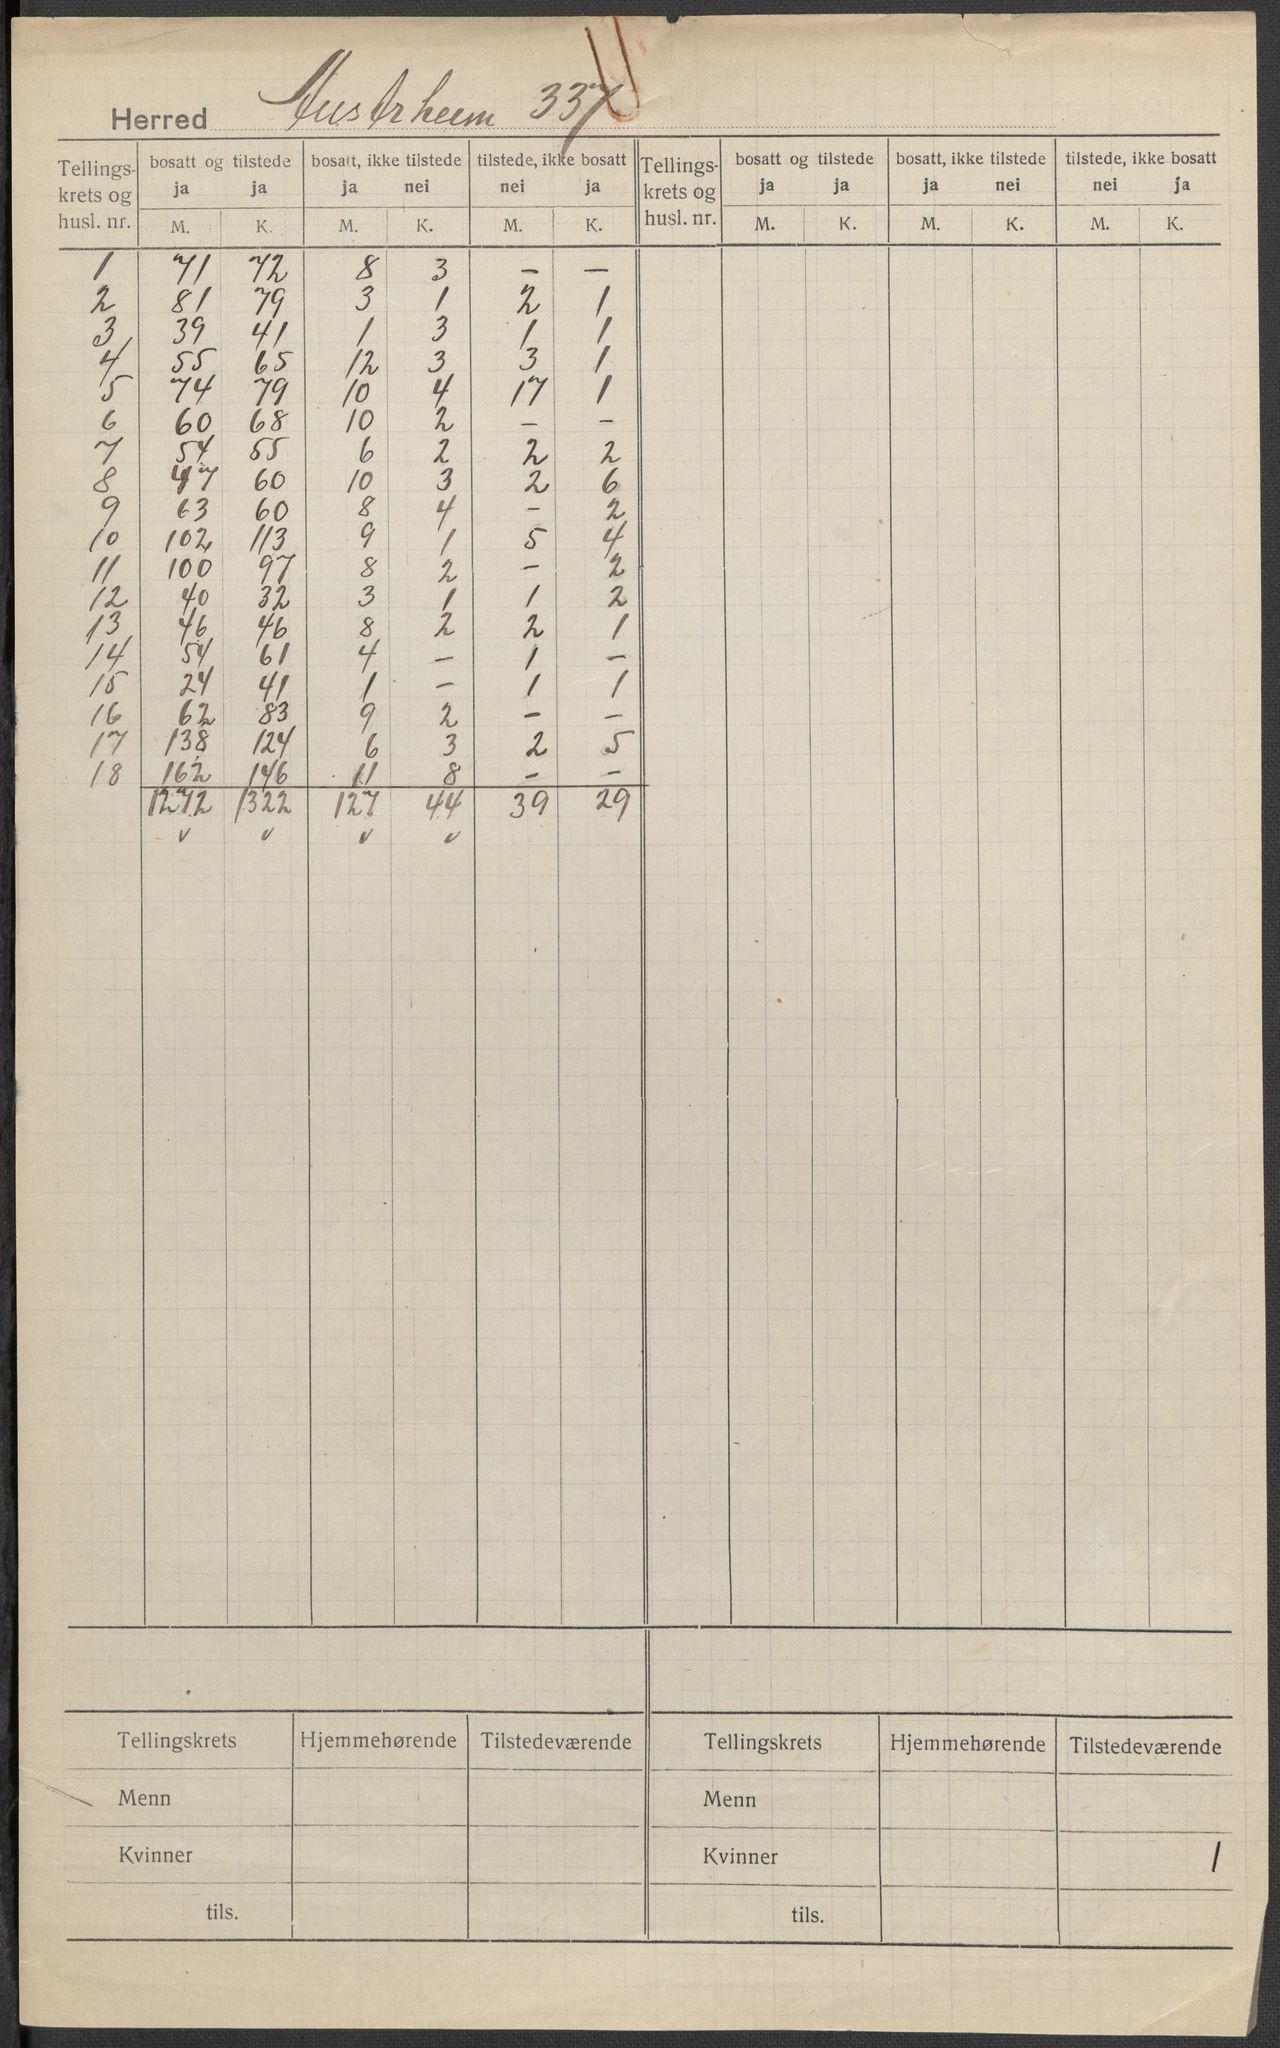 Herred Austrheim 337
Tellings-krets og husl. nr. bosatt og tilstede bosatt, ikke tilstede tilstede, ikke bosatt Tellings-krets og husl. nr. bosatt og tilstede bosatt, ikke tilstede tilstede, ikke bosatt
ja ja ja nei nei ja ja ja ja nei nei ja
M. K. M. K. M. K. M. K. M. K. M. K.
1 71 72 8 3 – –
2 81 79 3 1 2 1
3 39 41 1 3 1 1
4 55 65 12 3 3 1
5 74 79 10 4 17 1
6 60 68 10 2 – –
7 54 55 6 2 2 2
8 47 60 10 3 2 6
9 63 60 8 4 – 2
10 102 113 9 1 5 4
11 100 97 8 2 – 2
12 40 32 3 1 1 2
13 46 46 8 2 2 1
14 54 61 4 – 1 –
15 24 41 1 – 1 1
16 62 83 9 2 – –
17 138 124 6 3 2 5
18 162 146 11 8 – –
1272 1322 127 44 39 29
v v v v
Tellingskrets Hjemmehørende Tilstedeværende Tellingskrets Hjemmehørende Tilstedeværende
Menn Menn
Kvinner Kvinner 1
tils. tils.